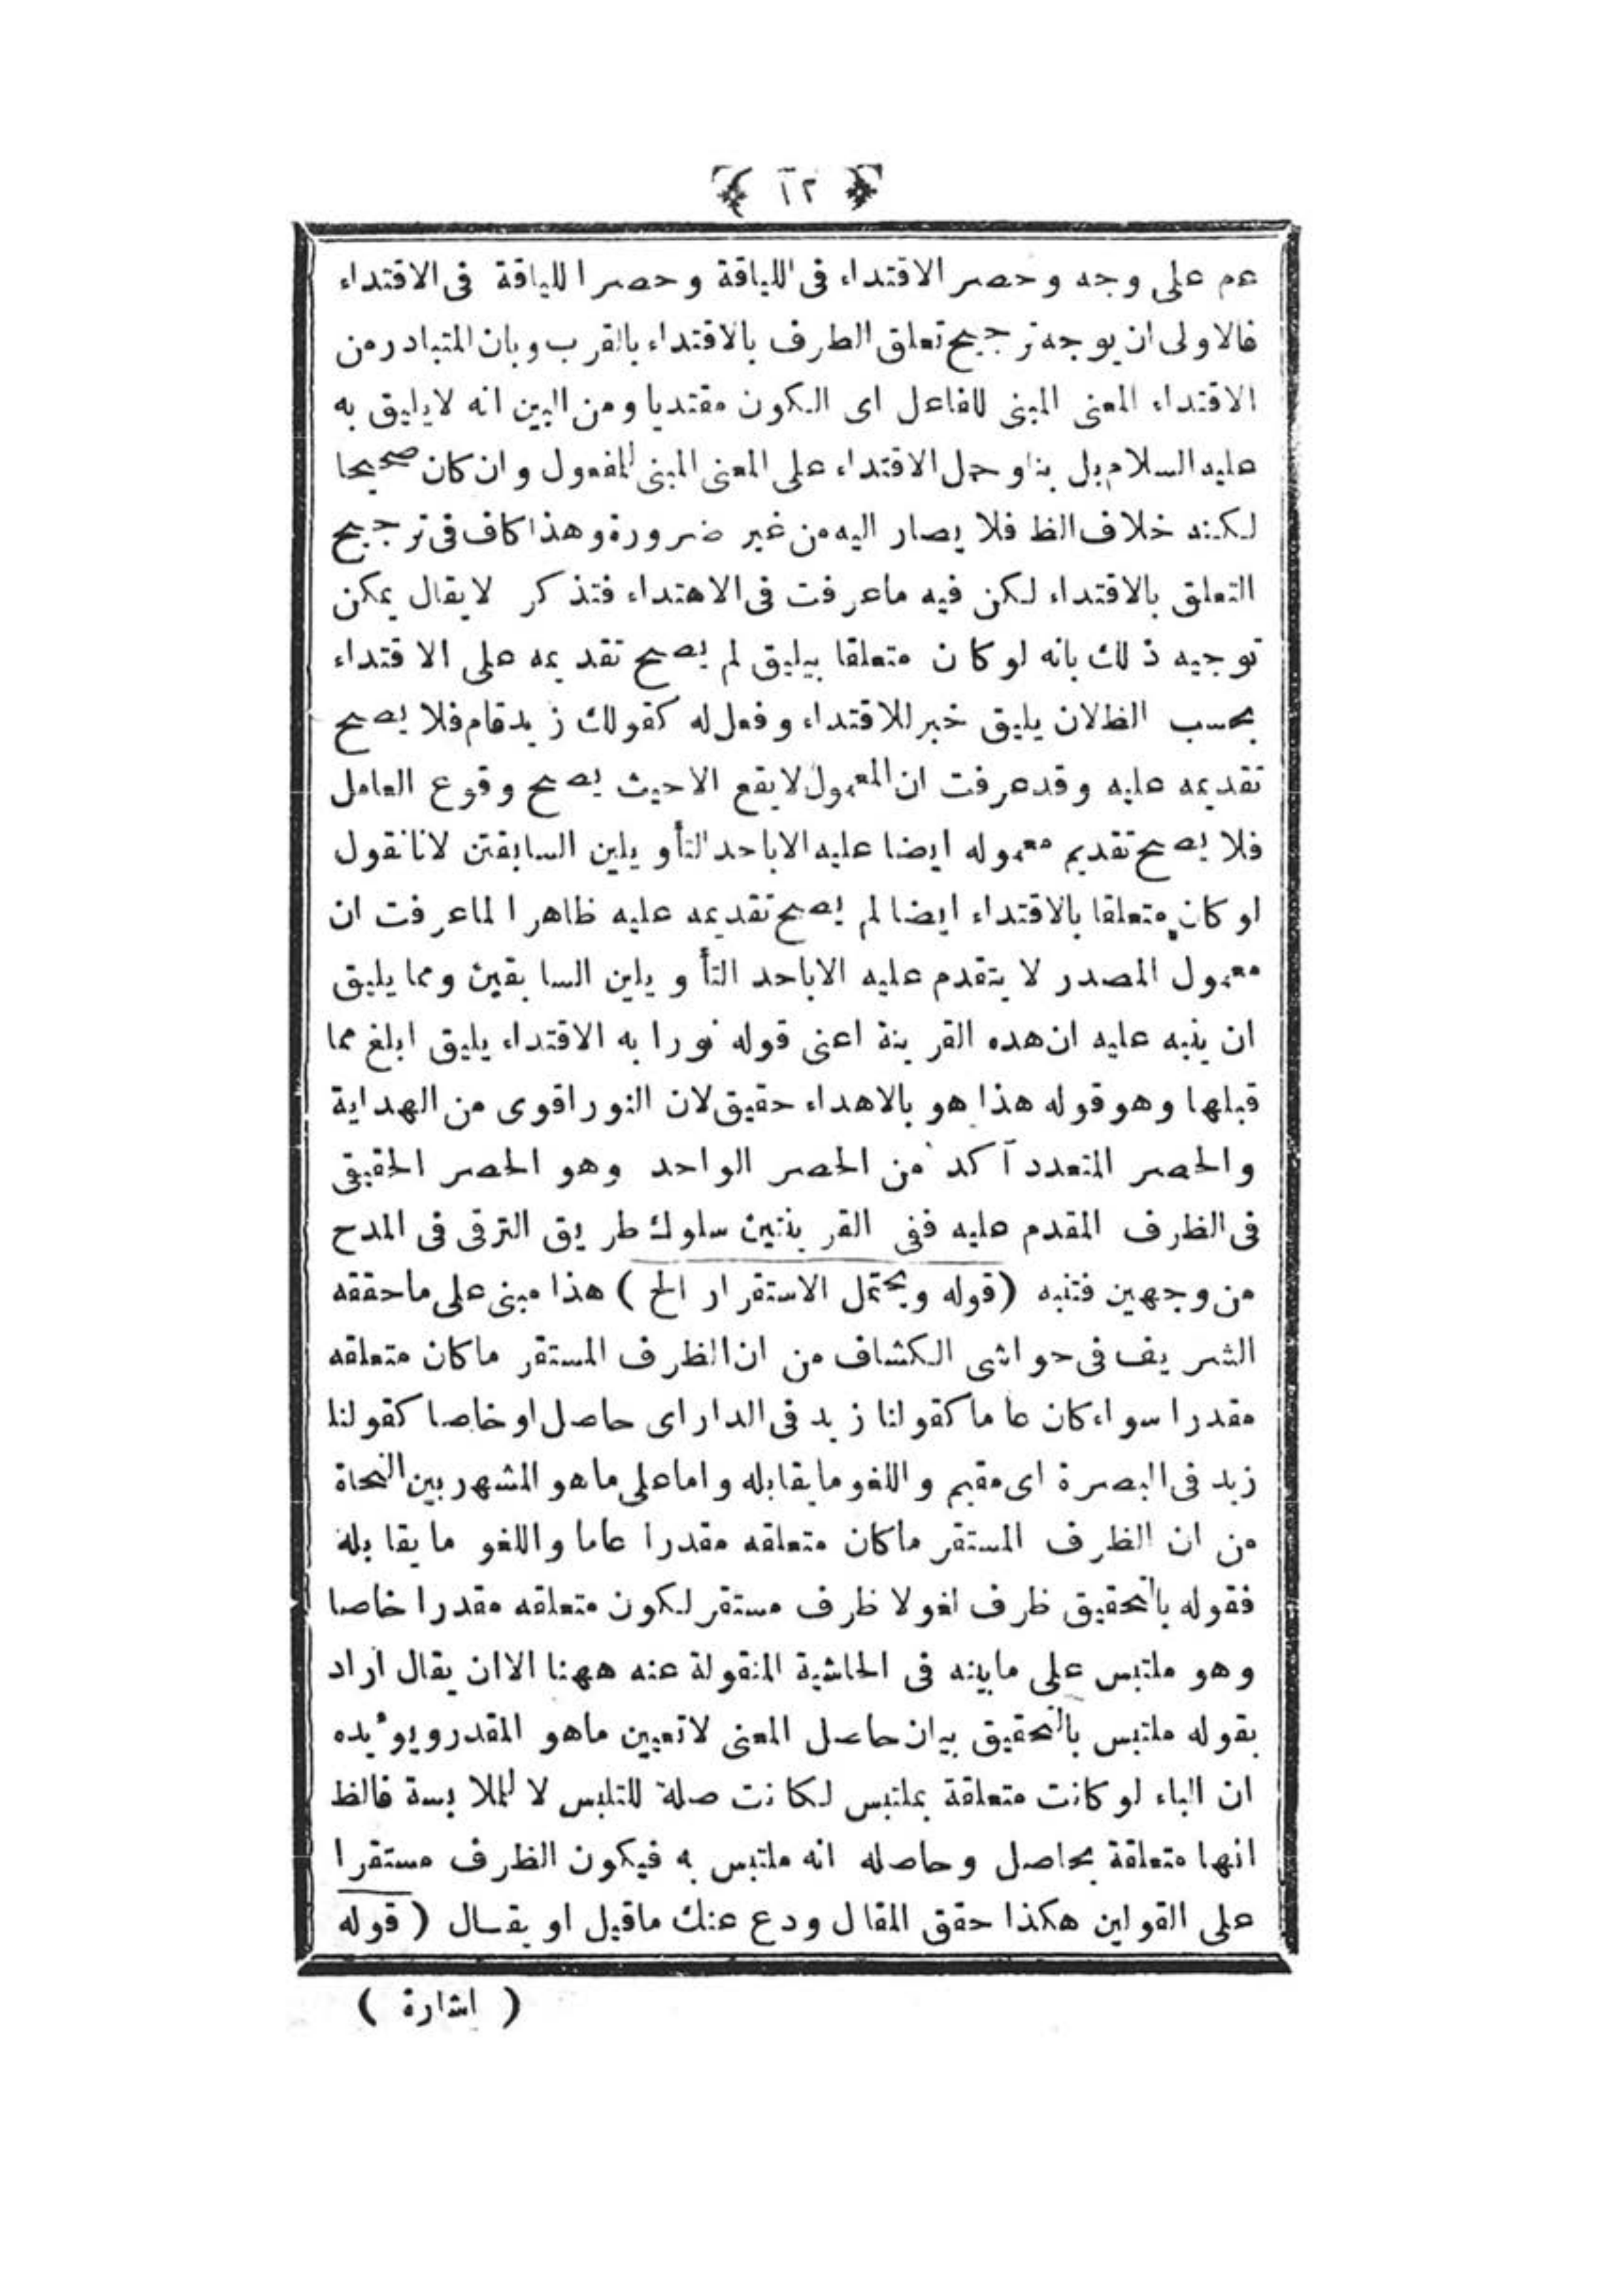 ١٢
عم على وجه وحصر الاقتداء فى اللياقة وحصر اللياقة فى الاقتداء
فالاولى ان يوجه ترجيح تعلق الطرف بالاقتداء بالقرب وبان المتبادر من
الاقتداء المعنى المبنى للفاعل اى الكون مقتديا ومن البين انه لايليق به
عليه السلام بل بنا وحمل الاقتداء على المعنى المبنى للمفعول وان كان صحيحا
لكنه خلاف الظ فلا يصار اليه من غير ضرورة وهذا كاف فى ترجيح
التعلق بالاقتداء لكن فيه ماعرفت فى الاهتداء فتذكر لايقال يمكن
توجيه ذلك بانه لو كان متعلقا بيليق لم يصح تقديمه على الاقتداء
بحسب الظ لان يليق خبر للاقتداء وفعل له كقولك زيد قام فلا يصح
تقديمه عليه وقد عرفت ان المعمول لايقع الاحيث يصح وقوع العامل
فلا يصح تقديم معموله ايضا عليه الاباحد التأويلين السابقتن لانا نقول
او كان متعلقا بالاقتداء ايضا لم يصح تقديمه عليه ظاهرا لماعرفت ان
معمول المصدر لا يتقدم عليه الاباحد التأويلين السابقين ومما يليق
ان ينبه عليه ان هده القرينة اعنى قوله نورا به الاقتداء يليق ابلغ مما
قبلها وهو قوله هذا هو بالاهداء حقيق لان النور اقوى من الهداية
والحصر المتعدد آكد من الحصر الواحد وهو الحصر الحقيقى
فى الظرف المقدم عليه ففى القرينتين سلوك طريق الترقى فى المدح
من وجهين فتنبه (قوله ويحتمل الاستقرار الخ) هذا مبنى على ماحققه
الشريف فى حواشى الكشاف من ان الظرف المستقر ماكان متعلقه
مقدرا سواء كان عاما كقولنا زيد فى الدار اى حاصل او خاصا كقولنا
زيد فى البصرة اى مقيم واللغو مايقابله واما على ماهو المشهر بين النحاة
من ان الظرف المستقر ماكان متعلقه مقدرا عاما واللغو مايقابله
فقوله بالتحقيق ظرف لغو لا ظرف مستقر لكون متعلقه مقدرا خاصا
وهو ملتبس على مابينه فى الحاشية المنقولة عنه ههنا الاان يقال اراد
بقوله ملتبس بالتحقيق بيان حاصل المعنى لاتعيين ماهو المقدر ويؤيده
ان الباء لو كانت متعلقة بملتبس لكانت صلة للتلبس لا للملابسة فالظ
انها متعلقة بحاصل وحاصله انه ملتبس به فيكون الظرف مستقرا
على القولين هكذا حقق المقال ودع عنك ماقيل او يقال (قوله
(اشارة)